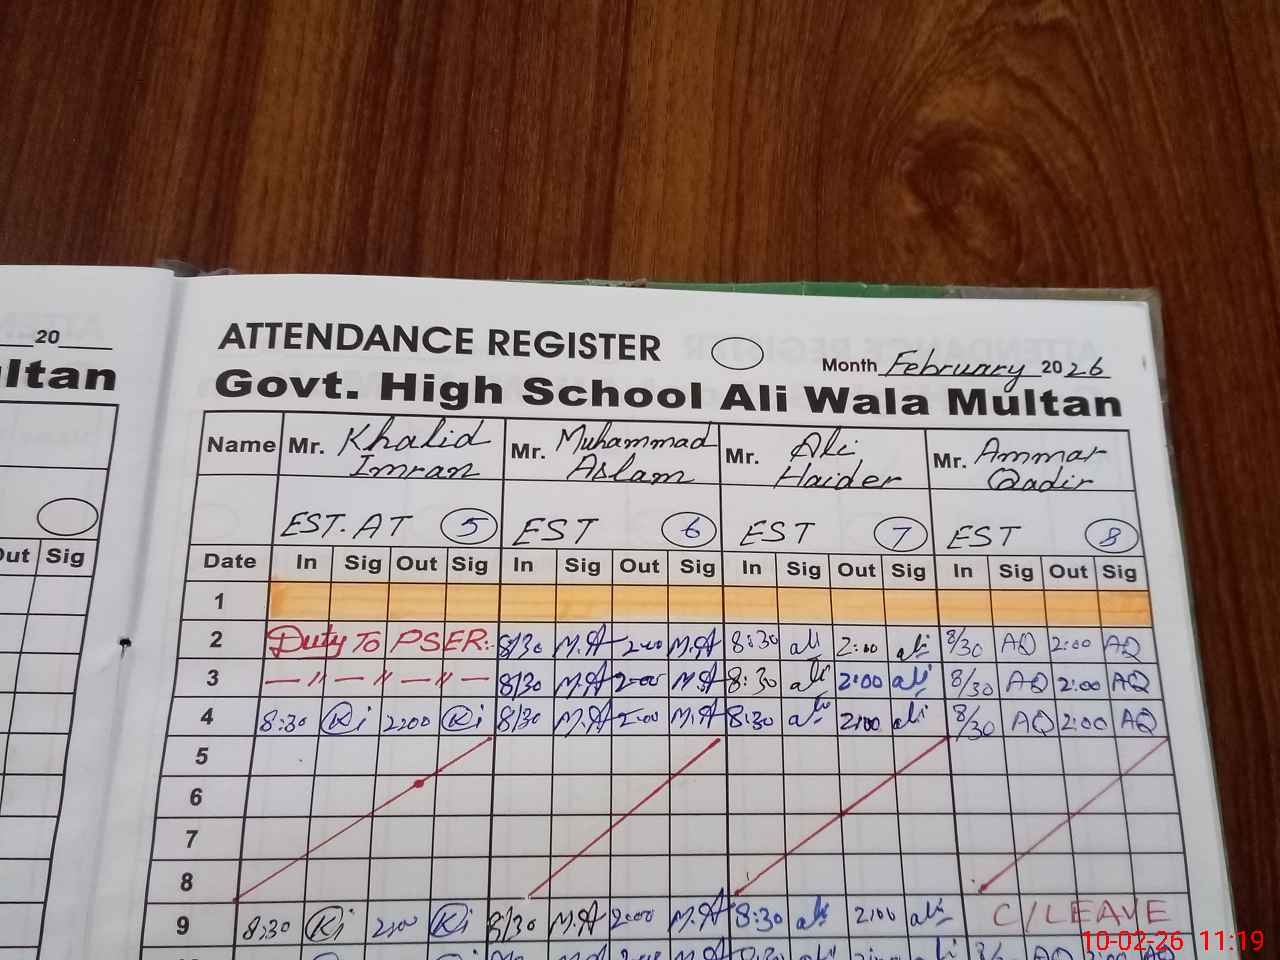 20
ltan
Out Sig
ATTENDANCE REGISTER
Month February 2026
Govt. High School Ali Wala Multan
Name Mr. Khalid Imran Mr. Muhammad Aslam Mr. Ali Haider Mr. Ammar Qadir
EST. AT 5 EST 6 EST 7 EST 8
Date In Sig Out Sig In Sig Out Sig In Sig Out Sig In Sig Out Sig
1
2 Duty To PSER:- 8/30 M.A 2:00 M.A 8:30 ali 2:00 ali 8/30 AQ 2:00 AQ
3 — " — " — " — 8/30 M.A 2:00 M.A 8:30 ali 2:00 ali 8/30 AQ 2:00 AQ
4 8:30 Ki 2:00 Ki 8/30 M.A 2:00 M.A 8:30 ali 2:00 ali 8/30 AQ 2:00 AQ
5
6
7
8
9 8:30 Ki 2:00 Ki 8/30 M.A 2:00 M.A 8:30 ali 2:00 ali C/LEAVE
10-02-26 11:19